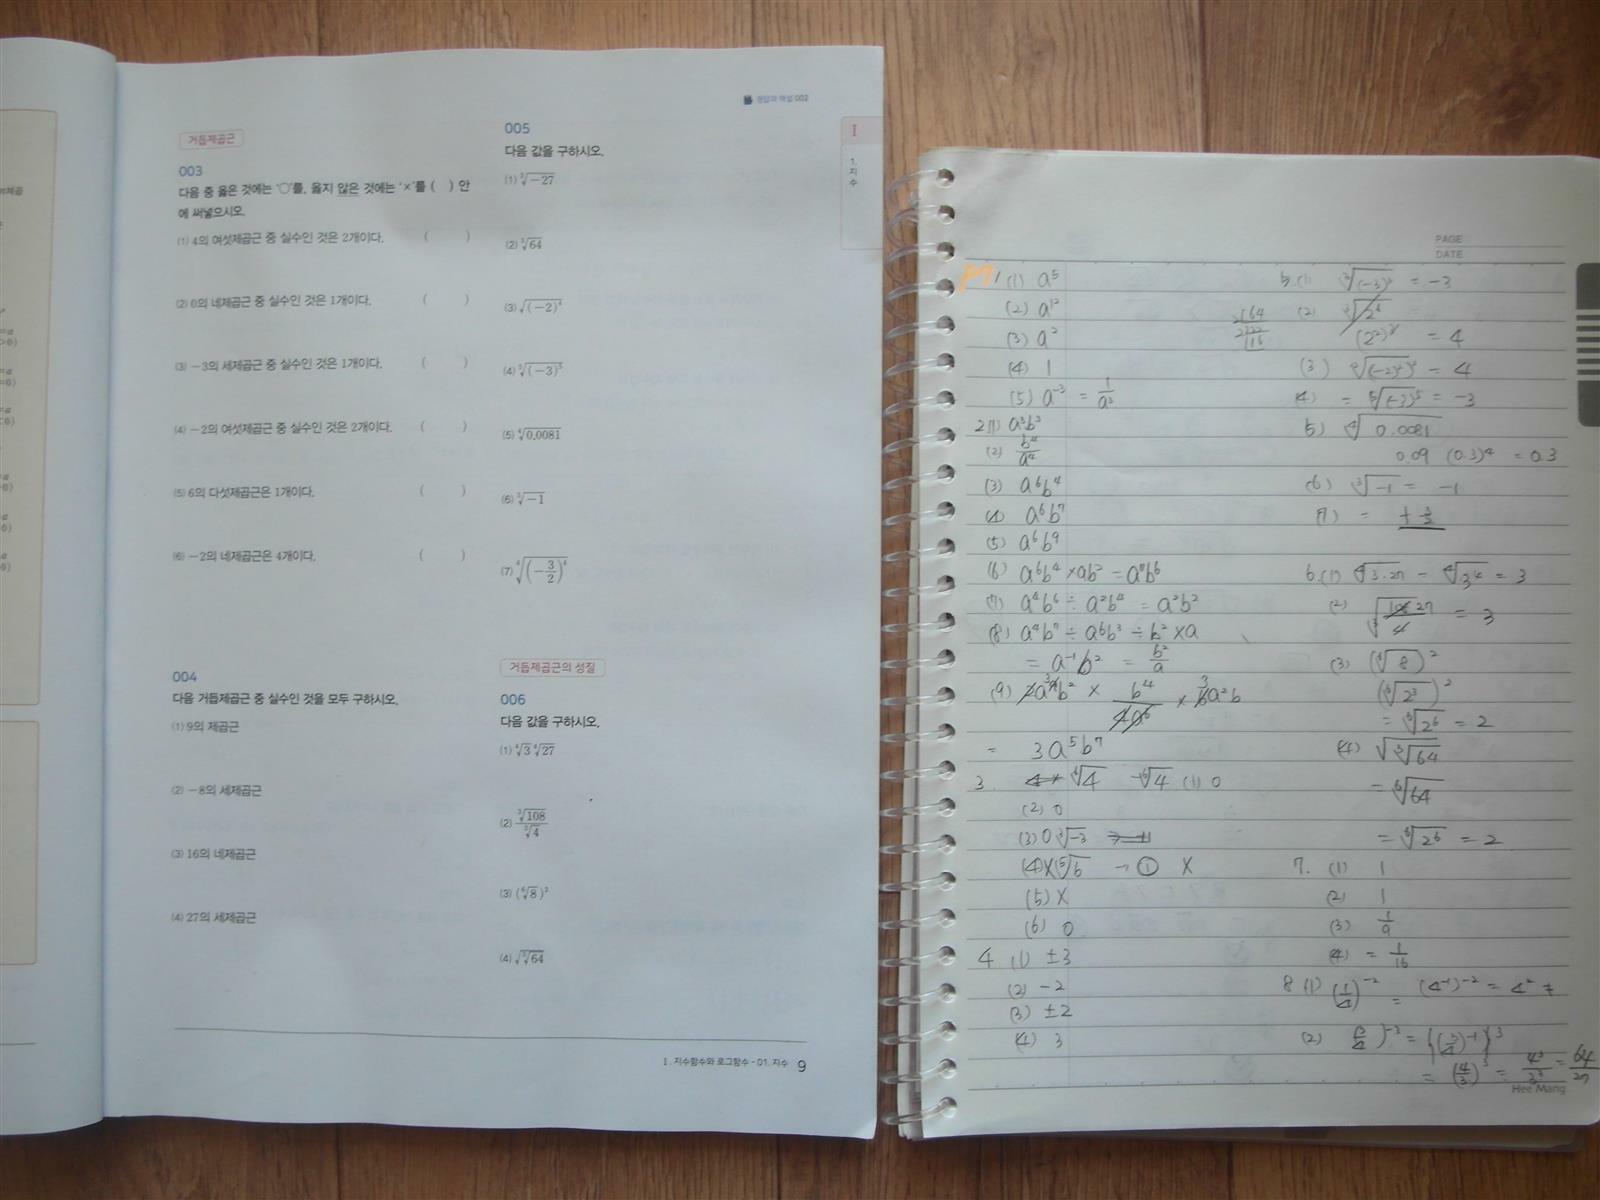 정답과 해설 002
I
1. 지수
거듭제곱근
003
다음 중 옳은 것에는 '○'를, 옳지 않은 것에는 '×'를 ( ) 안
에 써넣으시오.
(1) 4의 여섯제곱근 중 실수인 것은 2개이다. ( )
(2) 0의 네제곱근 중 실수인 것은 1개이다. ( )
(3) −3의 세제곱근 중 실수인 것은 1개이다. ( )
(4) −2의 여섯제곱근 중 실수인 것은 2개이다. ( )
(5) 6의 다섯제곱근은 1개이다. ( )
(6) −2의 네제곱근은 4개이다. ( )
004
다음 거듭제곱근 중 실수인 것을 모두 구하시오.
(1) 9의 제곱근
(2) −8의 세제곱근
(3) 16의 네제곱근
(4) 27의 세제곱근
005
다음 값을 구하시오.
(1) ∛−27
(2) ∛64
(3) √(−2)⁴
(4) ⁵√(−3)⁵
(5) ⁴√0.0081
(6) ∛−1
(7) ⁴√(−3/2)⁴
거듭제곱근의 성질
006
다음 값을 구하시오.
(1) ⁴√3 ⁴√27
(2) ∛108/∛4
(3) (⁶√8)²
(4) √∛64
I. 지수함수와 로그함수 - 01. 지수 9
PAGE
DATE
1 (1) a⁵
(2) a¹²
(3) a²
(4) 1
(5) a⁻³ = 1/a³
2 (1) a³b³
(2) b⁴/a⁴
(3) a⁶b⁴
(4) a⁶b⁷
(5) a⁶b⁹
(6) a⁶b⁴ × ab² = a⁷b⁶
(7) a⁴b⁶ ÷ a²b⁴ = a²b²
(8) a⁴b⁷ ÷ a⁶b³ ÷ b² × a
= a⁻¹b² = b²/a
(9)
= 3a⁵b⁷
3. ⁶√4 −⁶√4 (1) 0
(2) 0
(3) 0 ∛−3
(4) × ⁵√6 → ① ×
(5) ×
(6) 0
4 (1) ±3
(2) −2
(3) ±2
(4) 3
5. (1) ∛(−3)³ = −3
(2) ∛2⁶
(2²) = 4
(3) = 4
(4) = ⁵√(−3)⁵ = −3
5) ⁴√0.0081
0.09 (0.3)⁴ = 0.3
(6) ∛−1 = −1
(7) =
6. (1) ⁴√3·27 = ⁴√3⁴ = 3
(2) = 3
(3) (⁶√8)²
(⁶√2³)²
= ⁶√2⁶ = 2
(4) √∛64
= ⁶√64
= ⁶√2⁶ = 2
7. (1) 1
(2) 1
(3) 1/9
(4) = 1/16
8 (1) (1/4)⁻² = (4⁻¹)⁻² = 4²
(2) = {(3/4)⁻¹}³
= (4/3)³ = 4³/3³ = 64/27
Hee Mang